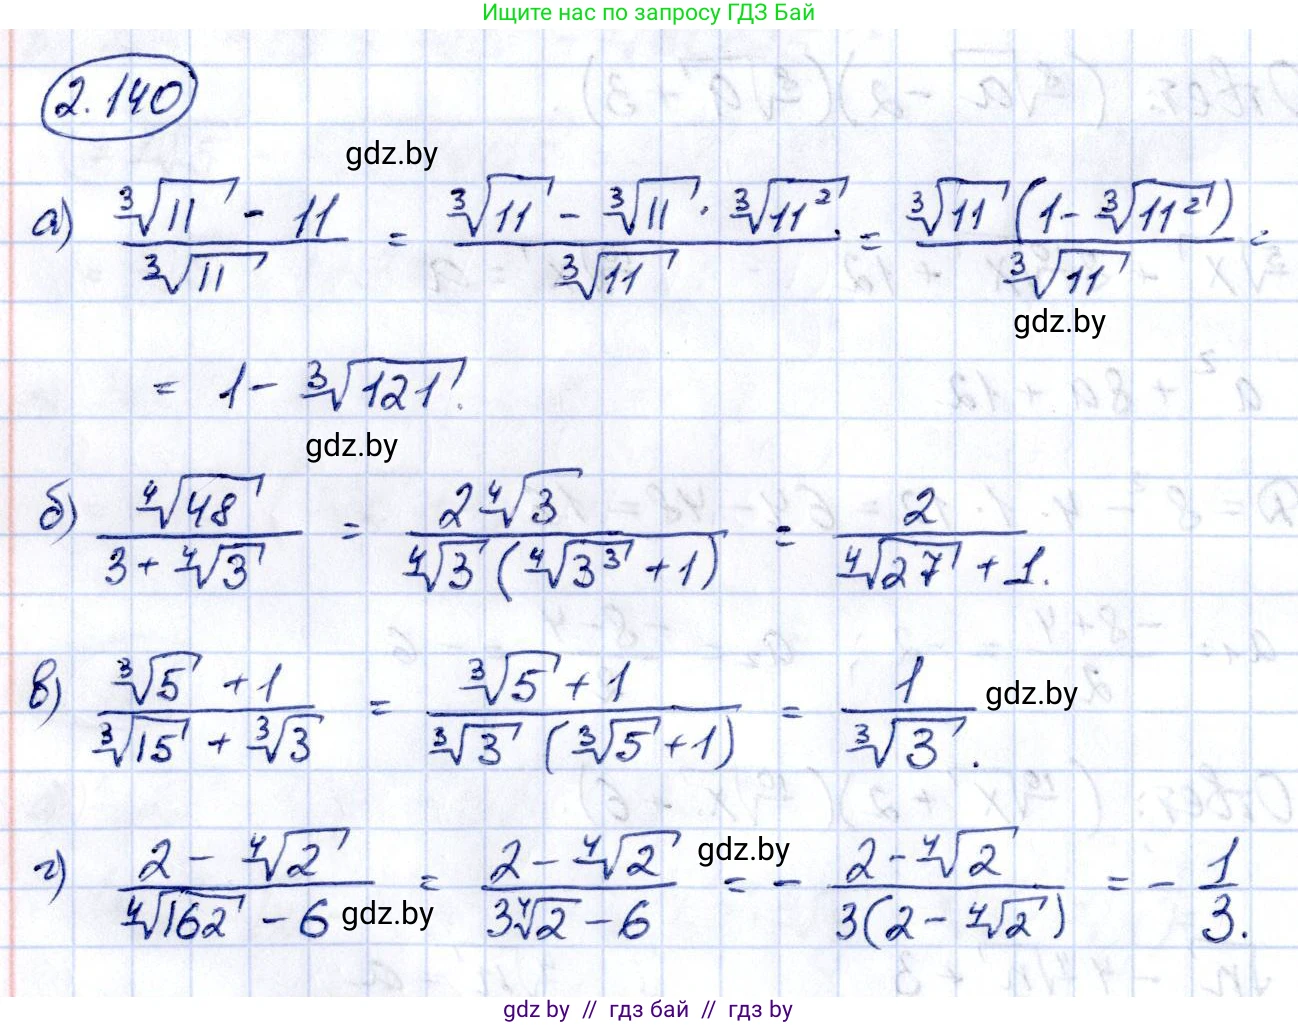 Ищите нас по запросу ГДЗ Бай
2.140
gdz.by
а) (∛11 - 11)/∛11 = (∛11 - ∛11 · ∛11²)/∛11 = (∛11 (1 - ∛11²))/∛11 =
gdz.by
= 1 - ∛121.
gdz.by
б) ∜48/(3 + ∜3) = 2∜3/(∜3 (∜3³ + 1)) = 2/(∜27 + 1).
в) (∛5 + 1)/(∛15 + ∛3) = (∛5 + 1)/(∛3 (∛5 + 1)) = 1/∛3.
gdz.by
г) (2 - ∜2)/(∜162 - 6) = (2 - ∜2)/(3∜2 - 6) = - (2 - ∜2)/(3(2 - ∜2)) = - 1/3.
gdz.by
gdz.by
gdz.by // гдз бай // гдз by